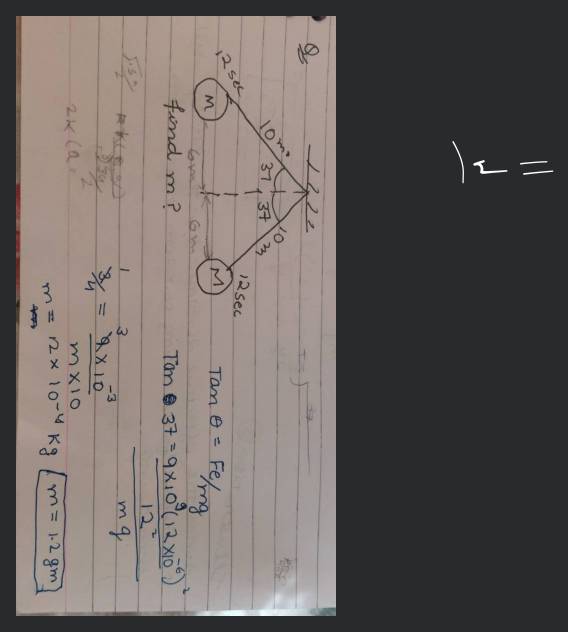 Q
12sec
M
10 m
37
37
10
m
6m
6m
M
12sec
find m?
Tan θ = Fe/mg
Tan 37 = 9×10⁹(12×10⁻⁶)²
12²
mg
3/4 = 9×10⁻³
m×10
m = 12×10⁻⁴ kg m = 1.2gm